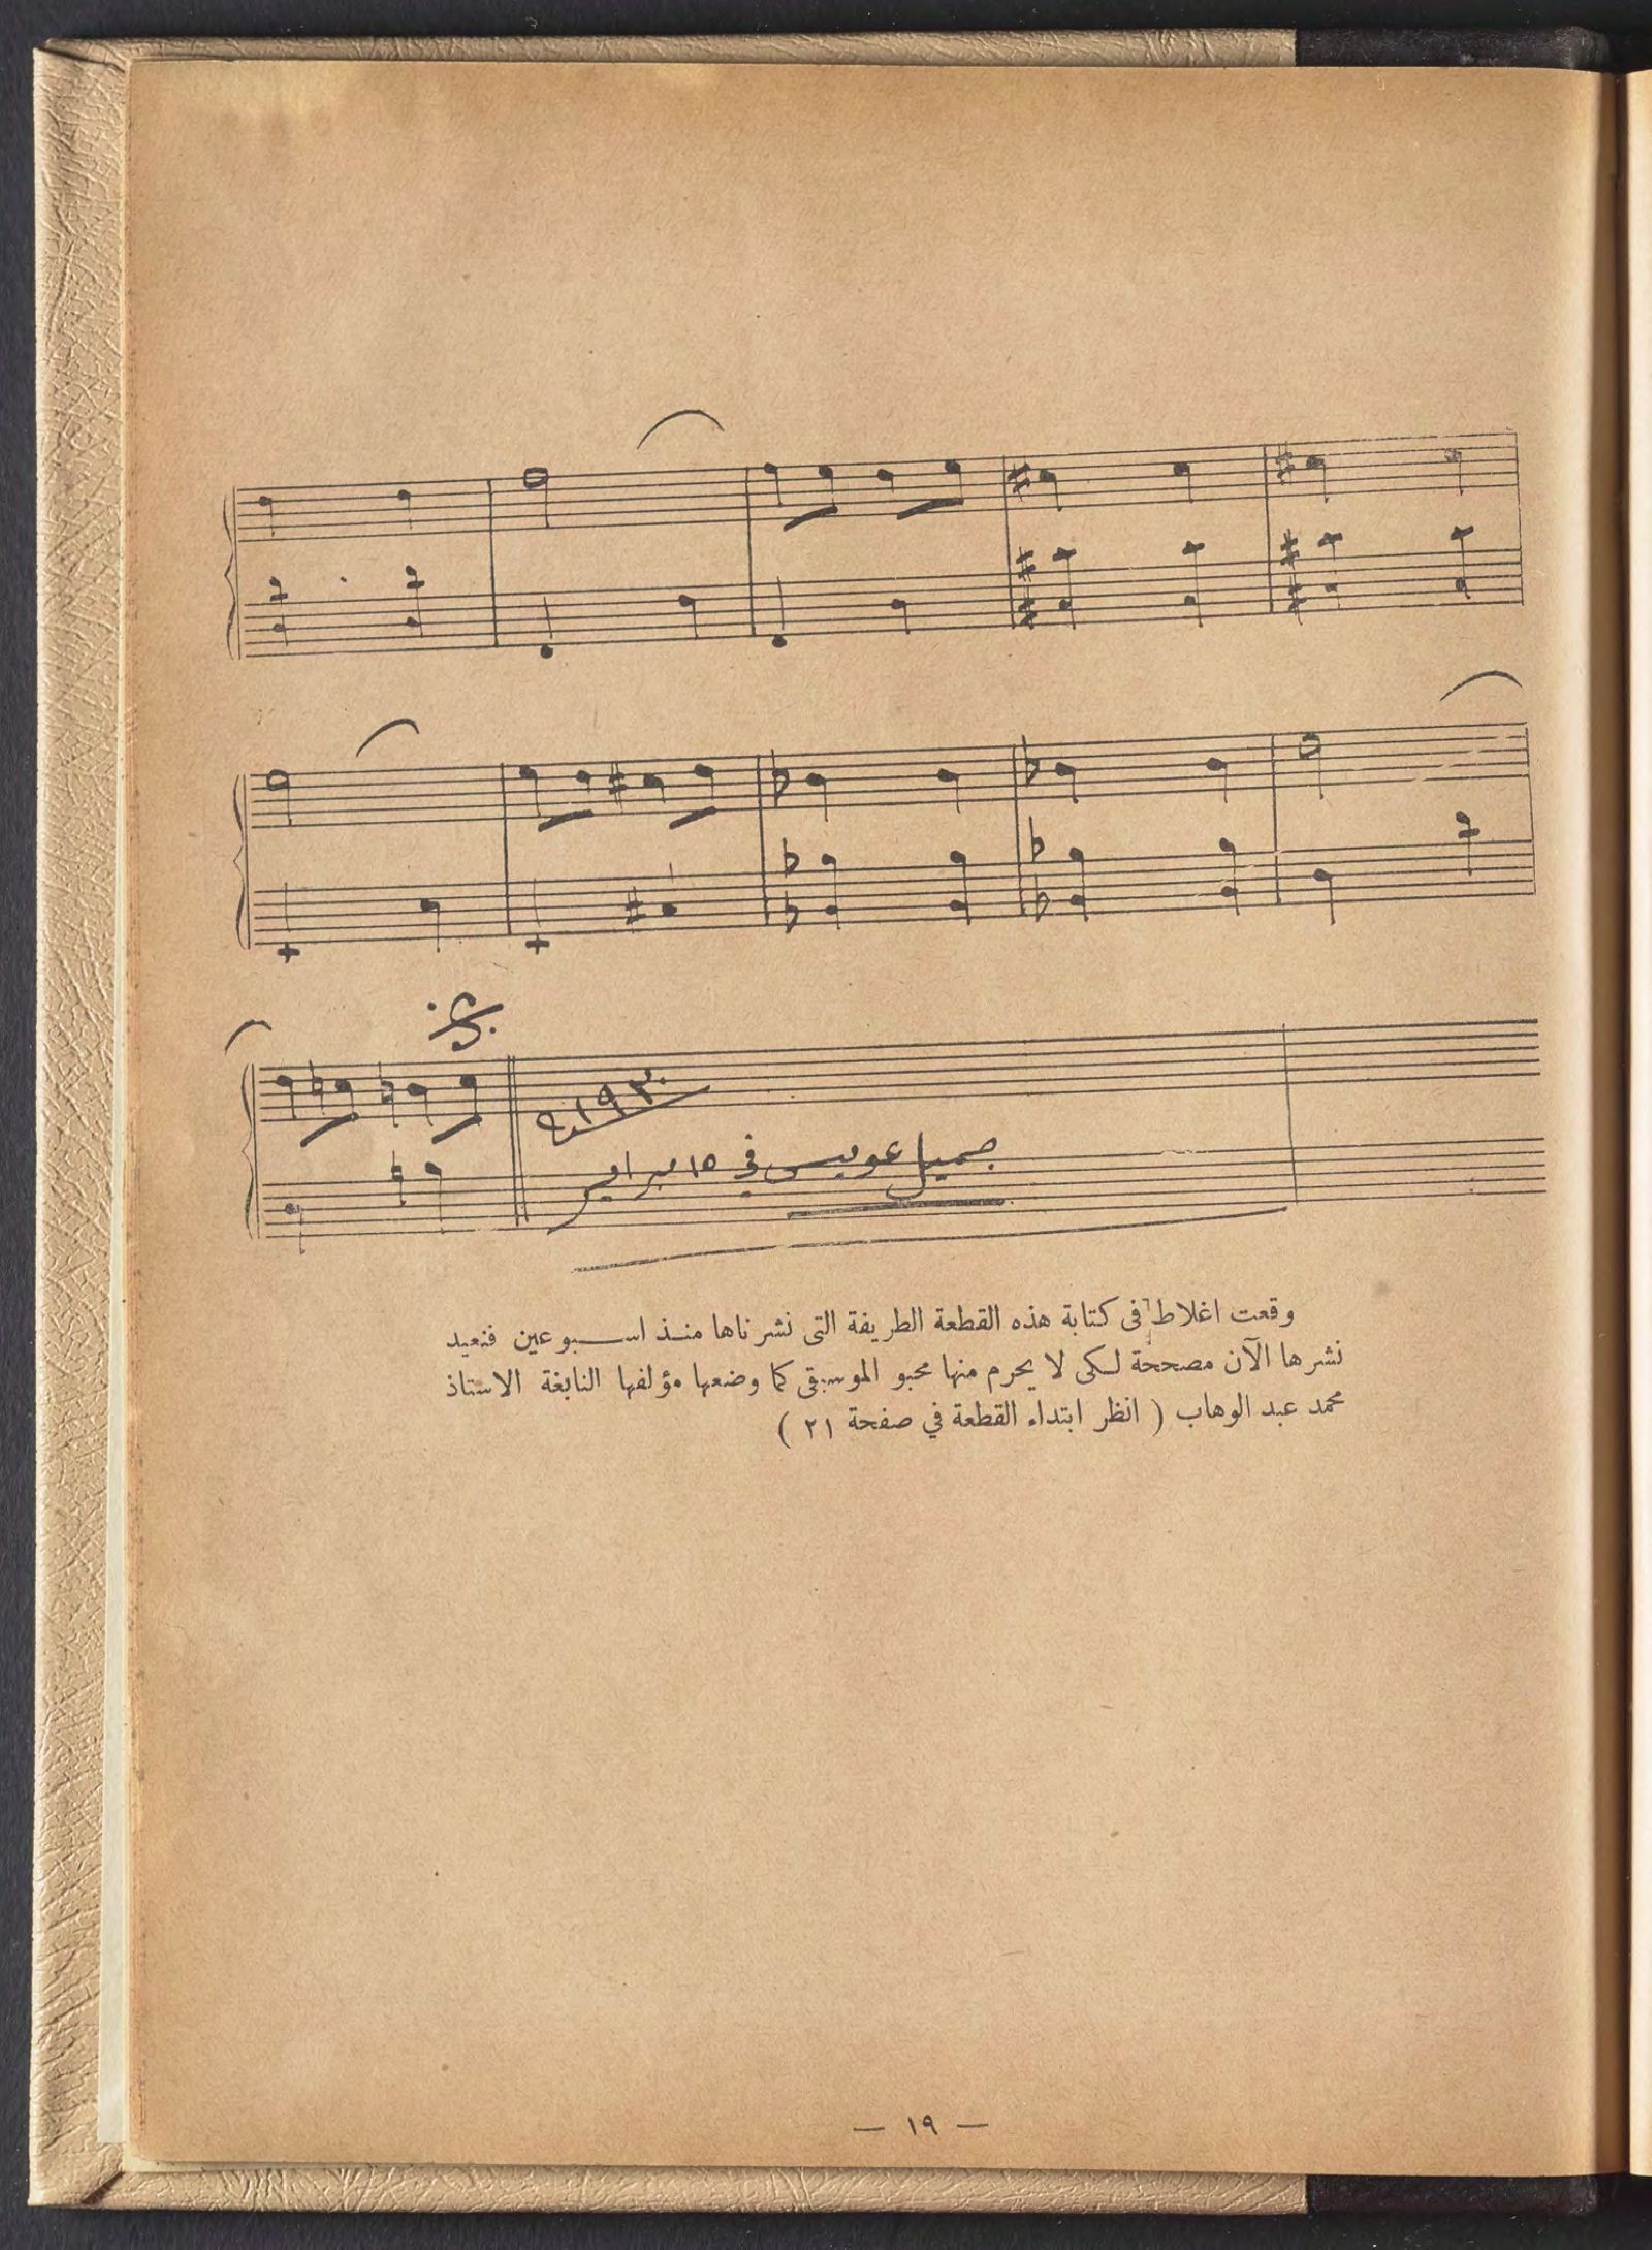 سنة ١٩٣٠
جميل عويس في ١٥ فبراير
وقعت اغلاط فى كتابة هذه القطعة الطريفة التى نشرناها منذ اسبوعين فنعيد
نشرها الآن مصححة لكى لا يحرم منها محبو الموسيقى كما وضعها مؤلفها النابغة الاستاذ
محمد عبد الوهاب ( انظر ابتداء القطعة في صفحة ٢١ )
— ١٩ —